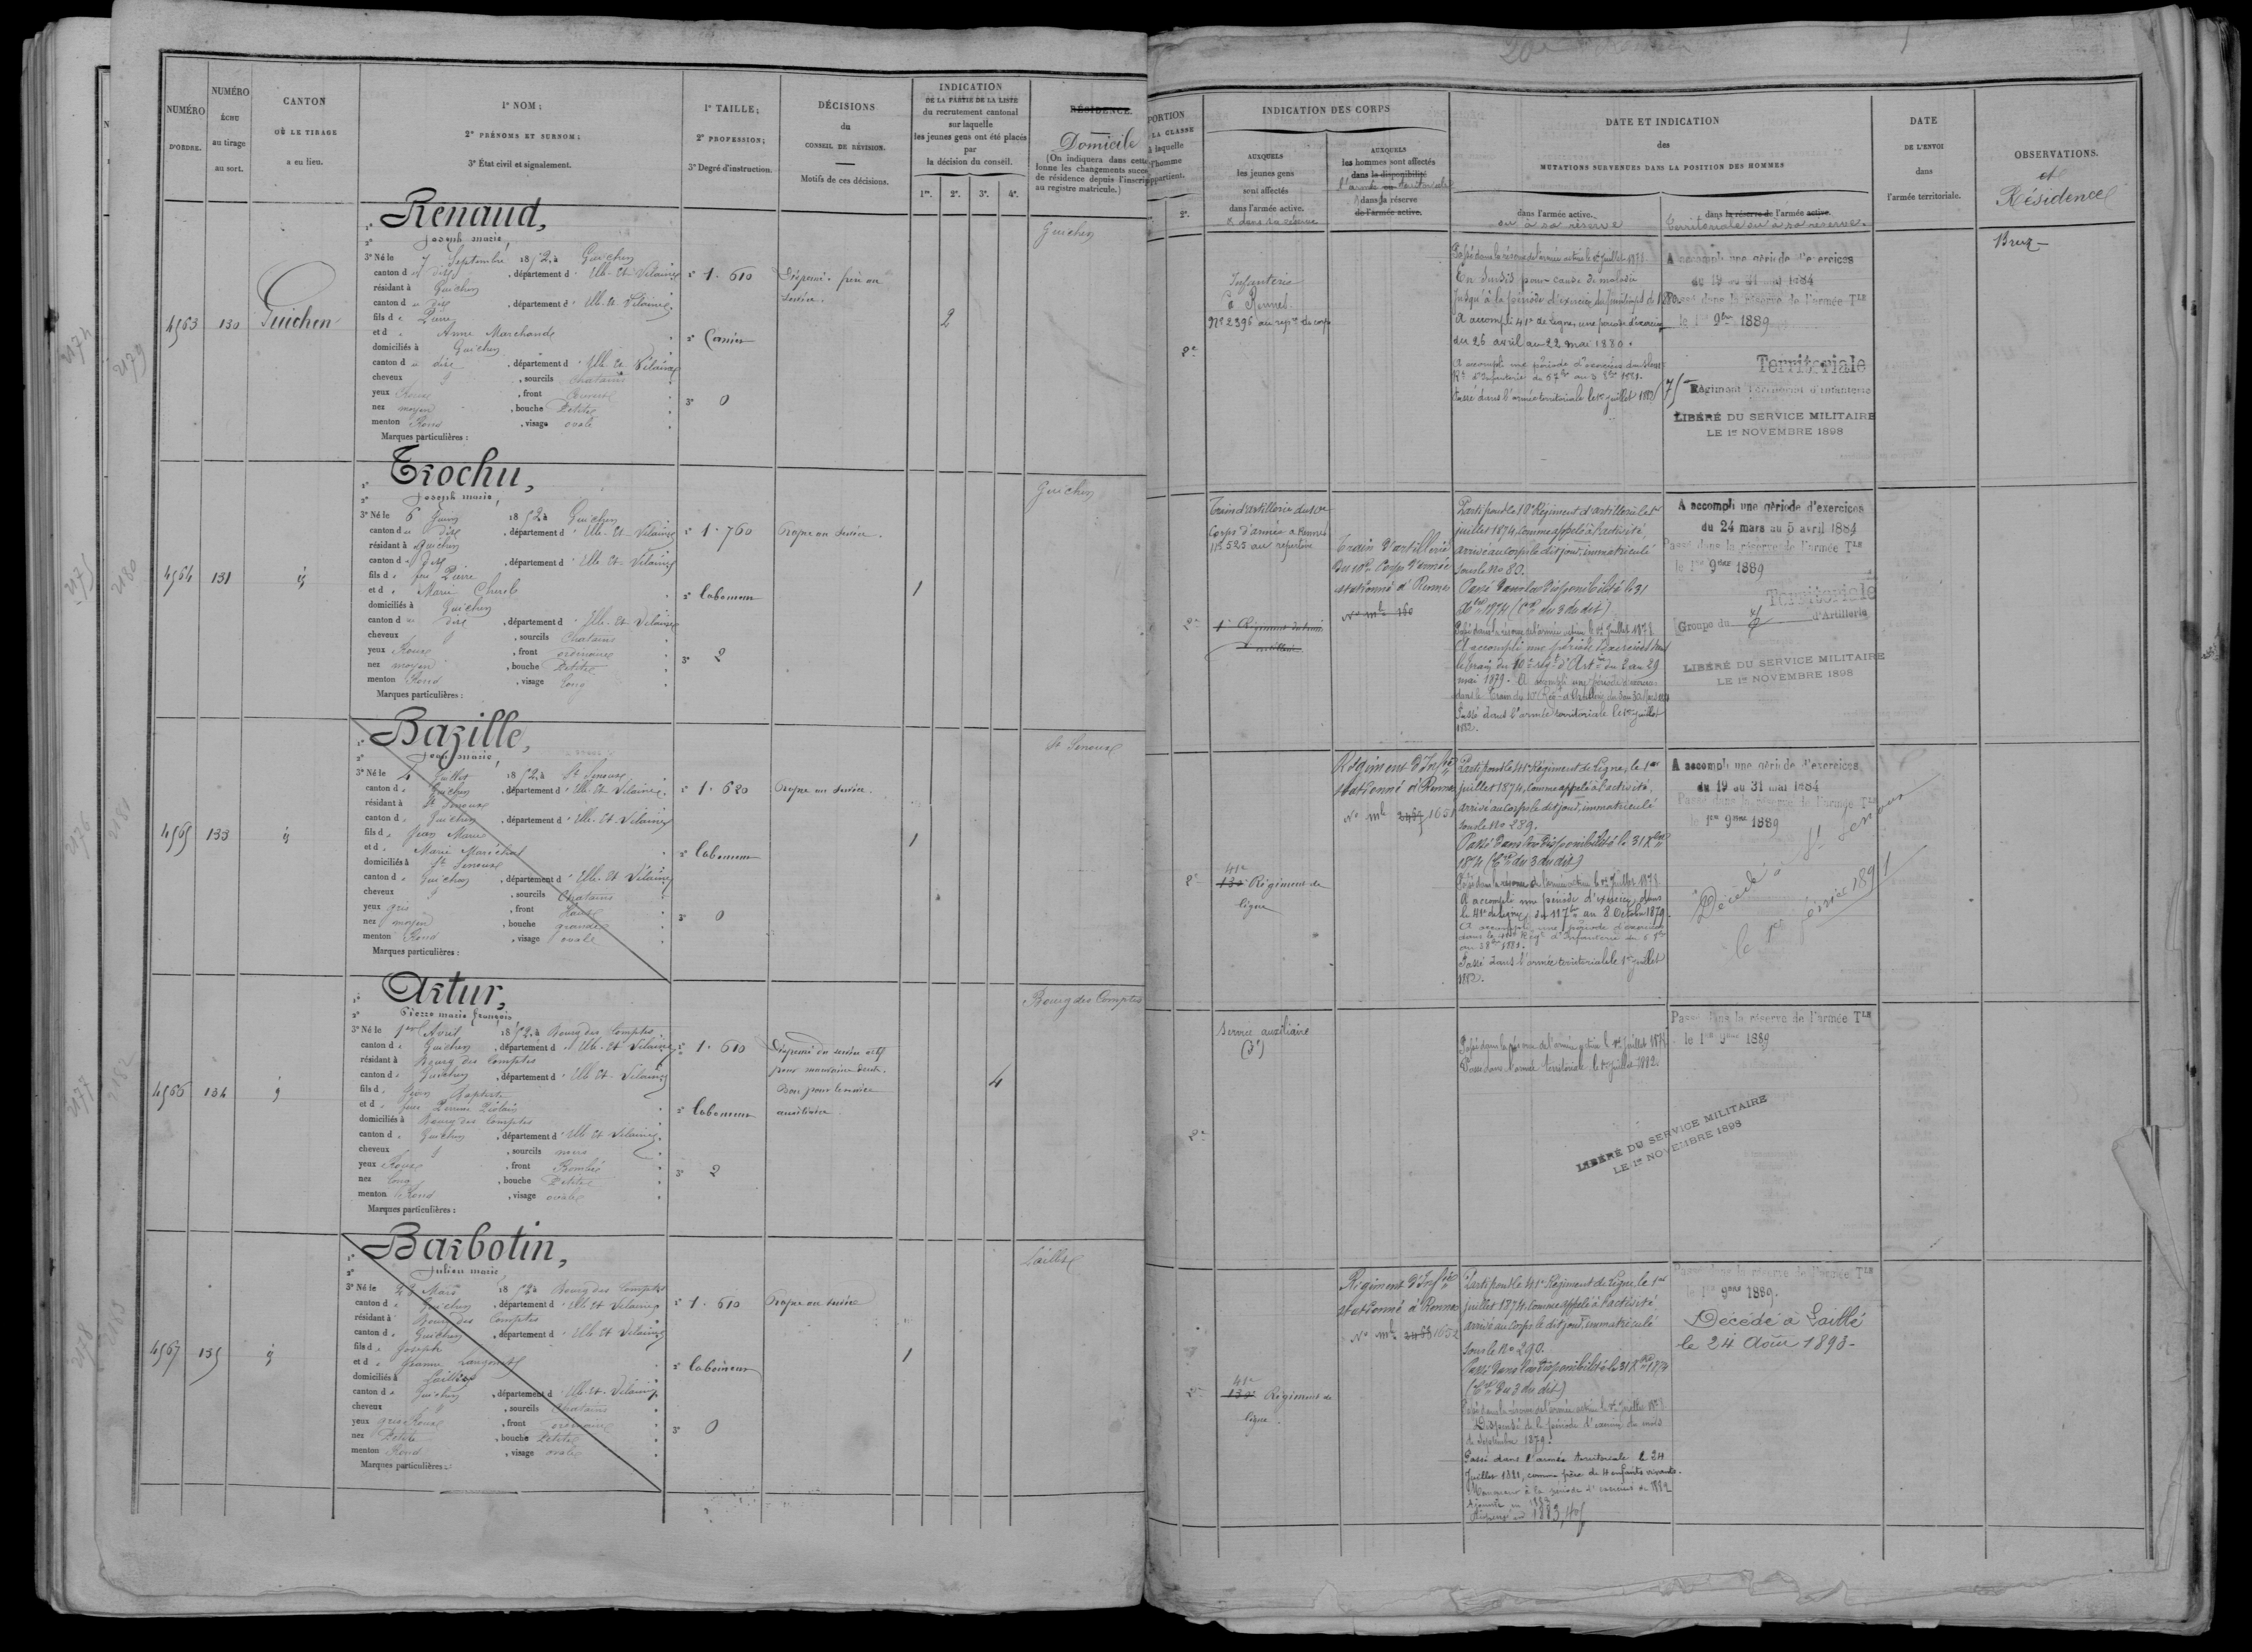 NUMÉRO
D'ORDRE.
NUMÉRO
ÉCHU
au tirage
au sort.
CANTON
OÙ LE TIRAGE
a eu lieu.
1º NOM;
2º PRÉNOMS ET SURNOM;
3º État civil et signalement.
1º TAILLE;
2º PROFESSION;
3º Degré d'instruction.
DÉCISIONS
du
CONSEIL DE RÉVISION.
Motifs de ces décisions.
INDICATION
DE LA PARTIE DE LA LISTE
du recrutement cantonal
sur laquelle
les jeunes gens ont été placés
par
la décision du conseil.
1re. 2e. 3e. 4e.
RÉSIDENCE.
Domicile
[On indiquera dans cette
lonne les changements succes
de résidence depuis l'inscrip
au registre matricule.]
4563
130
Guichen
Renaud,
2º Joseph marie,
3º Né le 7 Septembre 1852, à Guichen
canton d dit, département d'Ille-et-Vilaine
résidant à Guichen
canton d dit, département d'Ille-et-Vilaine
fils de Pierre
et d Anne Marchande
domiciliés à Guichen
canton d dit, département d'Ille-et-Vilaine
cheveux, sourcils chatains
yeux Roux, front
nez moyen, bouche Petite
menton Rond, visage ovale
Marques particulières :
1º 1.610
2º
3º 0
Dispensé. frère au
service.
2
Guichen
4564
131
id
Trochu,
2º Joseph marie,
3º Né le 6 Juin 1852 à Guichen
canton d dit, département d'Ille-et-Vilaine
résidant à Guichen
canton d dit, département d'Ille-et-Vilaine
fils d feu Pierre
et d Marie
domiciliés à Guichen
canton d dit, département d'Ille-et-Vilaine
cheveux, sourcils Chatains
yeux Roux, front ordinaire
nez moyen, bouche Petite
menton Rond, visage long
Marques particulières :
1º 1.760
2º laboureur
3º 2
Propre au service.
1
Guichen
4565
133
id
Bazille,
2º Jean marie,
3º Né le 4 Juillet 1852, à St Senoux
canton d Guichen, département d'Ille-et-Vilaine
résidant à St Senoux
canton d Guichen, département d'Ille-et-Vilaine
fils d Jean Marie
et d Marie Maréchal
domiciliés à St Senoux
canton d Guichen, département d'Ille-et-Vilaine
cheveux, sourcils Chatains
yeux gris, front Haut
nez moyen, bouche grande
menton Rond, visage ovale
Marques particulières :
1º 1.620
2º laboureur
3º 0
Propre au service.
1
St Senoux
4566
134
id
Artur,
2º Pierre marie françois
3º Né le 1er Avril 1852, à Bourg des Comptes
canton d Guichen, département d'Ille-et-Vilaine
résidant à Bourg des Comptes
canton d Guichen, département d'Ille-et-Vilaine
fils d Jean Baptiste
et d feue Perrine
domiciliés à Bourg des Comptes
canton d Guichen, département d'Ille-et-Vilaine
cheveux, sourcils noirs
yeux Roux, front Bombé
nez long, bouche Petite
menton Rond, visage ovale
Marques particulières :
1º 1.610
2º laboureur
3º 2
Dispensé du service actif
pour mauvaise denture.
Bon pour le service
auxiliaire.
4
Bourg des Comptes
4567
135
id
Barbotin,
2º Julien marie,
3º Né le 24 Mars 1852 à Bourg des Comptes
canton d Guichen, département d'Ille-et-Vilaine
résidant à Bourg des Comptes
canton d Guichen, département d'Ille-et-Vilaine
fils d Joseph
et d Jeanne
domiciliés à Laillé
canton d Guichen, département d'Ille-et-Vilaine
cheveux, sourcils Chatains
yeux gris Roux, front ordinaire
nez Petit, bouche Petite
menton Rond, visage ovale
Marques particulières :
1º 1.610
2º laboureur
3º 0
Propre au service
1
Laillé
PORTION
LA CLASSE
à laquelle
l'homme
appartient.
2e.
INDICATION DES CORPS
AUXQUELS
les jeunes gens
sont affectés
dans l'armée active.
& dans sa réserve
AUXQUELS
les hommes sont affectés
dans la disponibilité
l'armée ou territoriale
dans la réserve
de l'armée active.
DATE ET INDICATION
des
MUTATIONS SURVENUES DANS LA POSITION DES HOMMES
dans l'armée active.
ou à sa réserve
dans la réserve de l'armée active.
territoriale ou à sa réserve.
DATE
DE L'ENVOI
dans
l'armée territoriale.
OBSERVATIONS.
et
Résidence
2e
Infanterie
à Rennes
Nº 2396 au rep.re du corps
Passé dans la réserve de l'armée active le 1er Juillet 1878
En Sursis pour cause de maladie
jusqu'à la période d'exercices du printemps de 1880
A accompli 41e de Ligne, une période d'exercices
du 26 avril au 22 mai 1880.
A accompli une période d'exercices dans le 41e
Rt d'Infanterie du 5 7bre au 3 8bre 1881.
Passé dans l'armée territoriale le 1er juillet 1882
A accompli une période d'exercices
du 19 au 31 mai 1884
Passé dans la réserve de l'armée Tle
le 1er 9bre 1889
Territoriale
75 Régiment Territorial d'Infanterie
LIBÉRÉ DU SERVICE MILITAIRE
LE 1er NOVEMBRE 1898
Bruz
2e
Train d'artillerie du 10e
Corps d'armée à Rennes
Nº 525 au répertoire
Train d'artillerie
du 10e Corps d'armée
stationné à Rennes
Nº mle 160
Parti pour le 10e Régiment d'artillerie le 1er
juillet 1874, comme appelé à l'activité,
arrivé au corps le dit jour, immatriculé
sous le Nº 80.
Passé dans la disponibilité le 31
Xbre 1874 (Cre du 3 du dit)
Passé dans la réserve de l'armée active le 1er Juillet 1878
A accompli une période d'exercices dans
le train du 10e Régt d'Artie du 2 au 29
mai 1879. A accompli une période d'exercices
Passé dans l'armée territoriale le 1er juillet
1882.
A accompli une période d'exercices
du 24 mars au 5 avril 1884
Passé dans la réserve de l'armée Tle
le 1er 9bre 1889
Territoriale
Groupe du d'Artillerie
LIBÉRÉ DU SERVICE MILITAIRE
LE 1er NOVEMBRE 1898
2e
41e
130e Régiment de
ligne
Régiment d'Infie
stationné à Rennes
Nº mle 1651
Parti pour le 41e Régiment de Ligne, le 1er
juillet 1874, comme appelé à l'activité,
arrivé au corps le dit jour, immatriculé
sous le Nº 289.
Passé dans la disponibilité le 31 Xbre
1874 (Cre du 3 du dit)
Passé dans la réserve de l'armée active le 1er Juillet 1878
A accompli une période d'exercices, dans
le 41e de Ligne, du 11 7bre au 8 Octobre 1879.
A accompli une période d'exercices
dans le 41e Régt d'Infanterie du 5 7bre
au 3 8bre 1881.
Passé dans l'armée territoriale le 1er juillet
1882.
A accompli une période d'exercices
du 19 au 31 mai 1884
Passé dans la réserve de l'armée Tle
le 1er 9bre 1889
Décédé à St Senoux
le 1er février 1891
2e
Service auxiliaire
(3e)
Passé dans la réserve de l'armée active le 1er juillet 1878
Passé dans l'armée territoriale le 1er juillet 1882.
Passé dans la réserve de l'armée Tle
le 1er 9bre 1889
LIBÉRÉ DU SERVICE MILITAIRE
LE 1er NOVEMBRE 1898
2e
41e
130e Régiment de
ligne
Régiment d'Infie
stationné à Rennes
Nº mle 1652
Parti pour le 41e Régiment de Ligne, le 1er
juillet 1874, comme appelé à l'activité,
arrivé au corps le dit jour, immatriculé
sous le Nº 290.
Passé dans la disponibilité le 31 Xbre 1874
(Cre du 3 du dit)
Passé dans la réserve de l'armée active le 1er Juillet 1878
Dispensé de la période d'exercices du mois
de Septembre 1879.
Passé dans l'armée territoriale le 24
Juillet 1881, comme père de 4 enfants vivants.
Manqué à la période d'exercices de 1882
1883
Passé dans la réserve de l'armée Tle
le 1er 9bre 1889.
Décédé à Laillé
le 24 Août 1893-
2174
2179
2175
2180
2176
2181
2177
2182
2178
2183